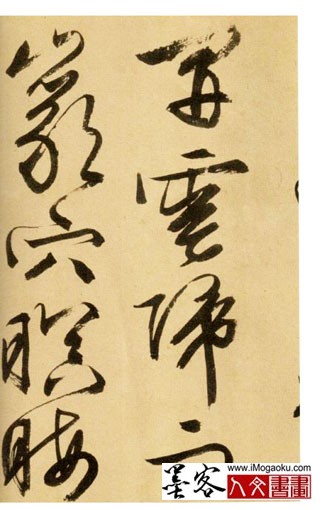 開雲歸而
巖穴暝晦
墨客
www.iMogaoku.com
人文書畫